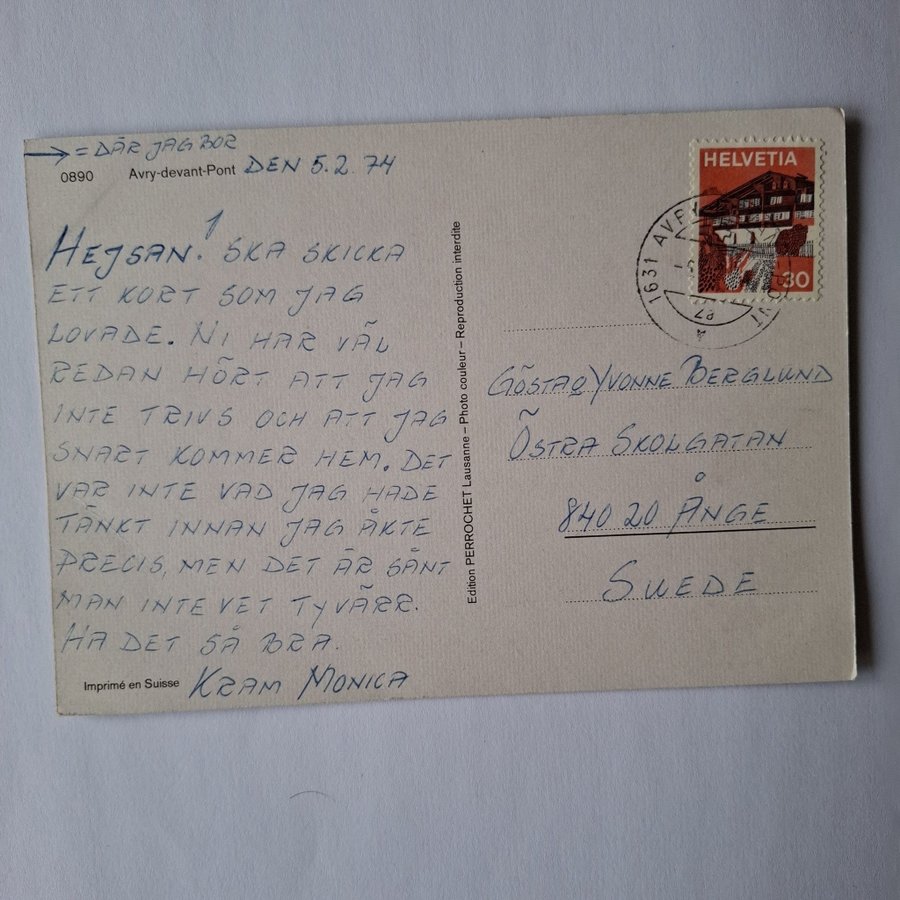 → = DÄR JAG BOR
0890 Avry-devant-Pont DEN 5.2.74
HEJSAN! SKA SKICKA
ETT KORT SOM JAG
LOVADE. NI HAR VÄL
REDAN HÖRT ATT JAG
INTE TRIVS OCH ATT JAG
SNART KOMMER HEM. DET
VAR INTE VAD JAG HADE
TÄNKT INNAN JAG ÅKTE
PRECIS, MEN DET ÄR SÅNT
MAN INTE VET TYVÄRR.
HA DET SÅ BRA.
Imprimé en Suisse KRAM MONICA
Edition PERROCHET Lausanne – Photo couleur – Reproduction interdite
HELVETIA
30
1631 AVRY
GÖSTA O YVONNE BERGLUND
ÖSTRA SKOLGATAN
840 20 ÅNGE
SWEDE